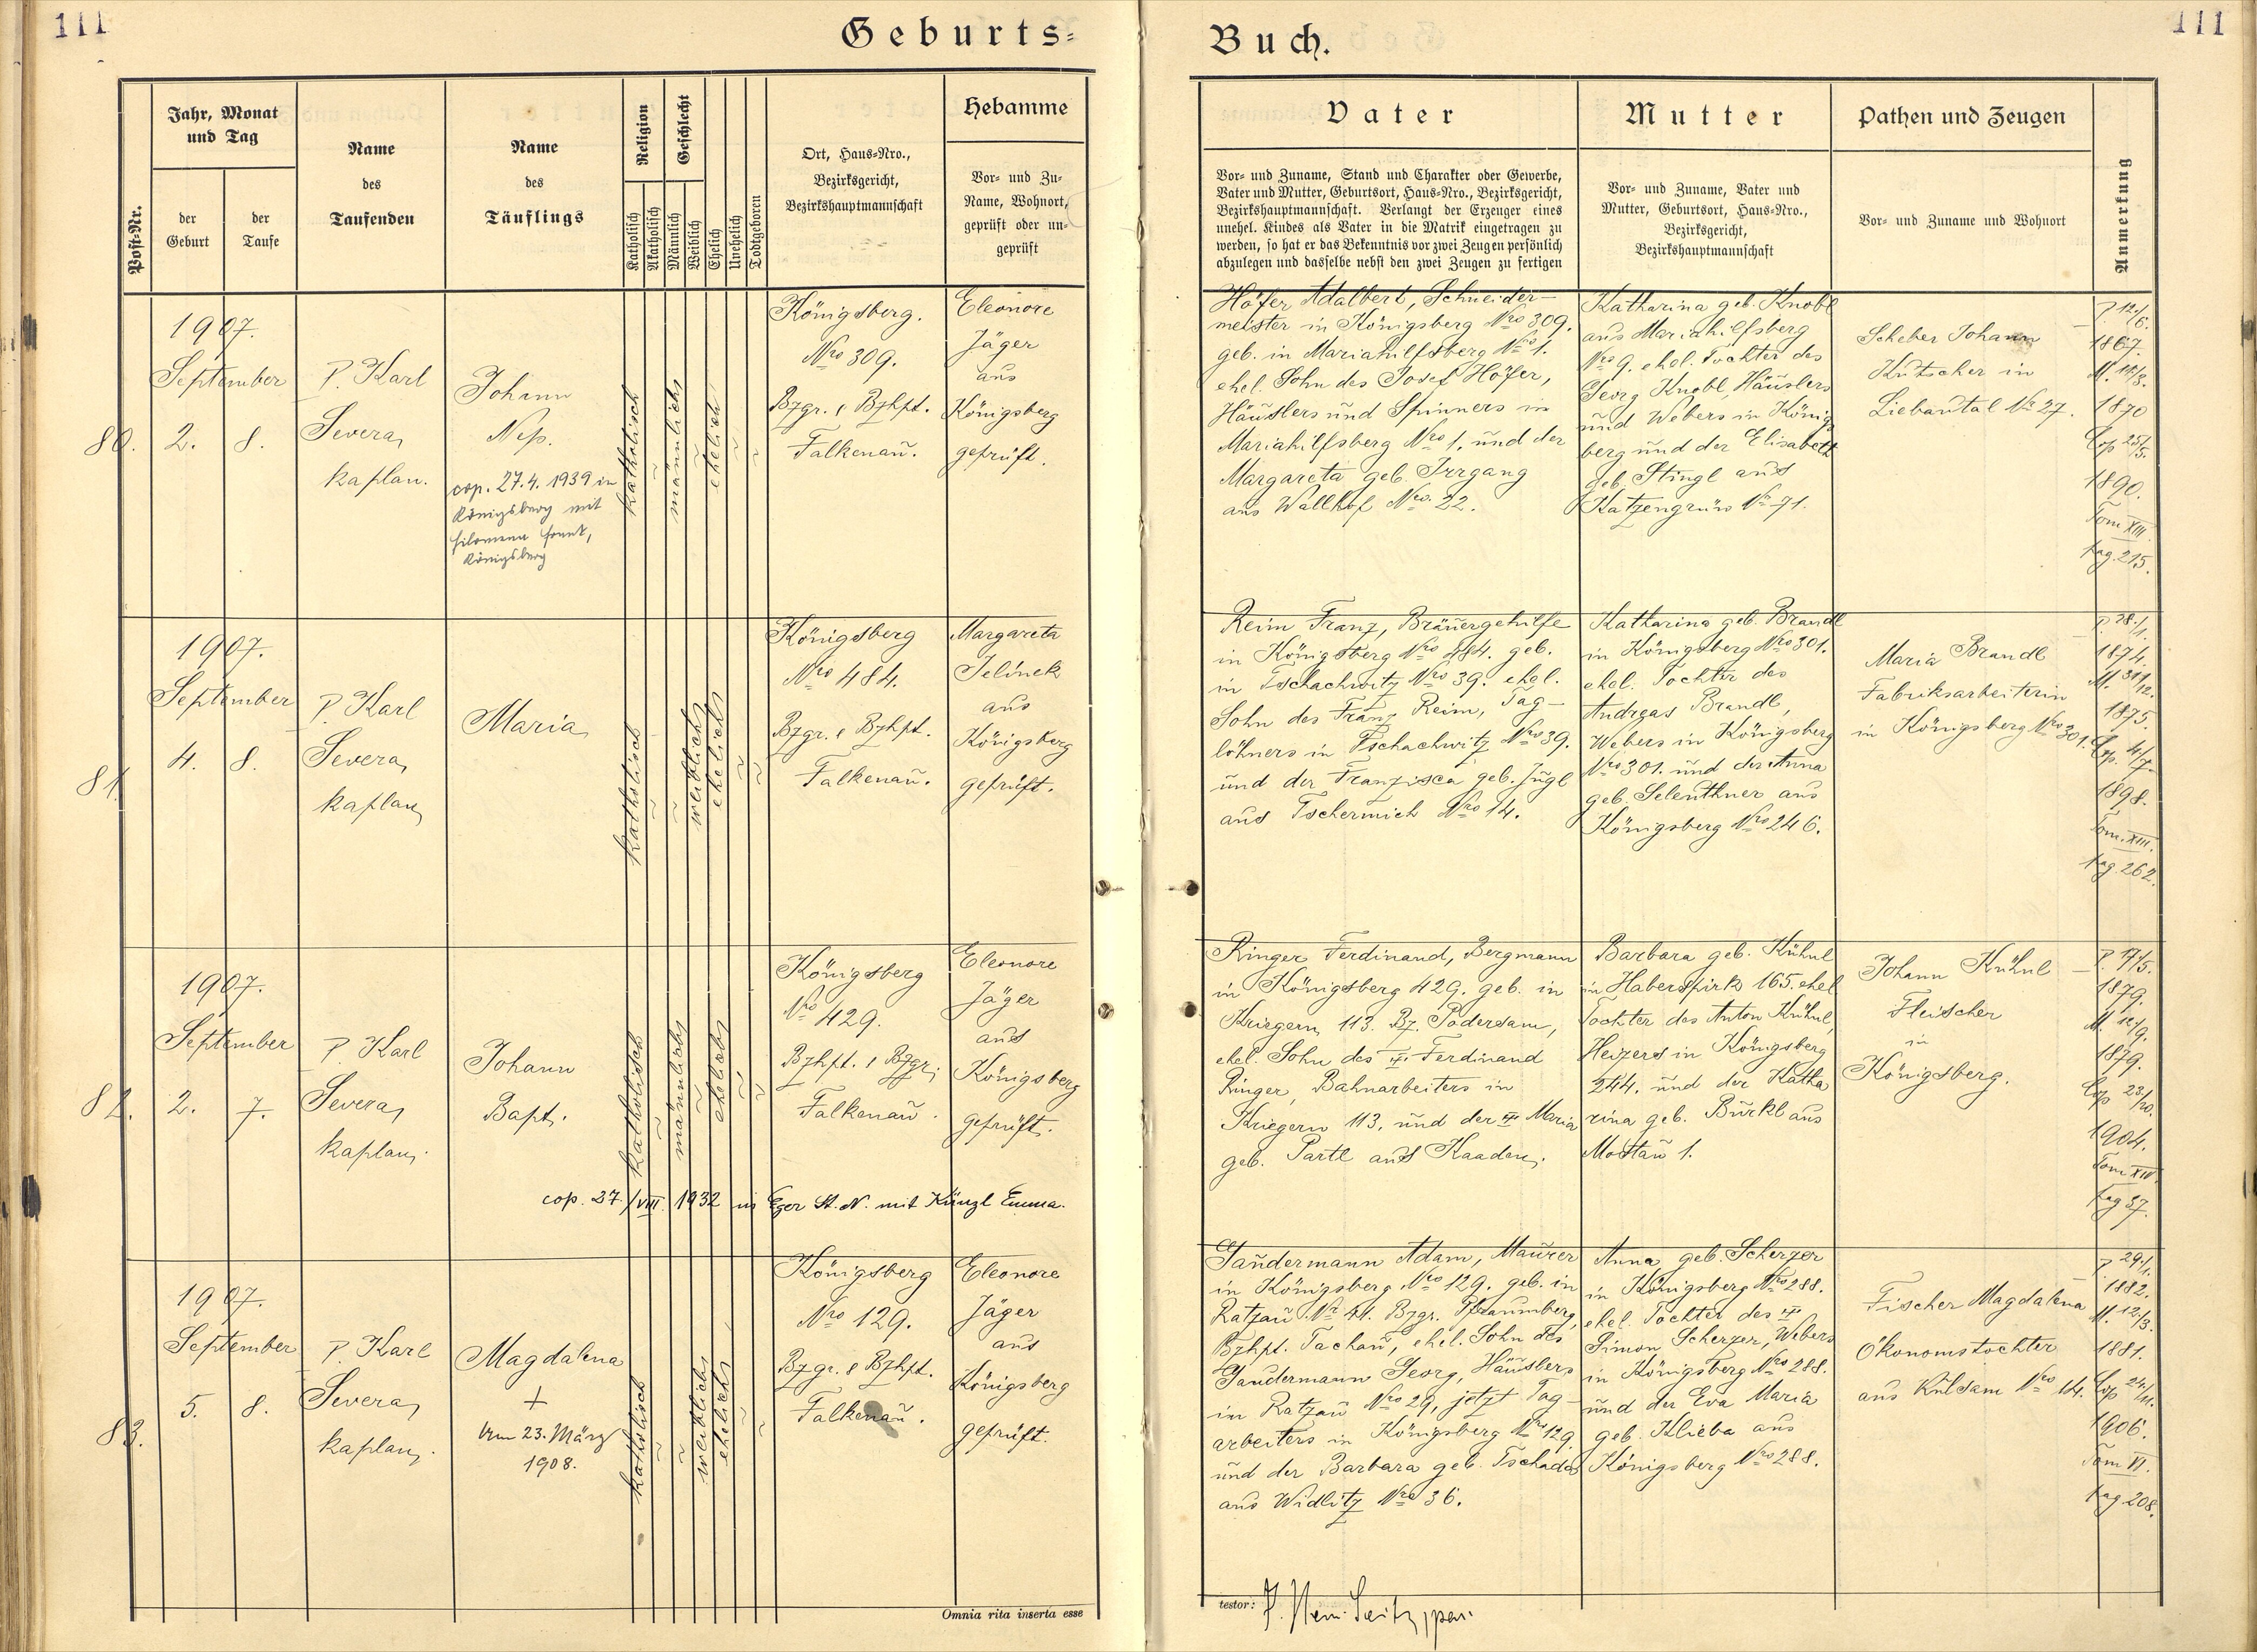 111
Geburts=
Buch.
111
Post-Nr.
Jahr, Monat
und Tag
der
Geburt
der
Taufe
Name
des
Taufenden
Name
des
Täuflings
Religion
Katholisch
Akatholisch
Geschlecht
Männlich
Weiblich
Ehelich
Unehelich
Todtgeboren
Ort, Haus-Nro.,
Bezirksgericht,
Bezirkshauptmannschaft
Hebamme
Vor- und Zu-
Name, Wohnort,
geprüft oder un-
geprüft
Vater
Vor- und Zuname, Stand und Charakter oder Gewerbe,
Vater und Mutter, Geburtsort, Haus-Nro., Bezirksgericht,
Bezirkshauptmannschaft. Verlangt der Erzeuger eines
unehel. Kindes als Vater in die Matrik eingetragen zu
werden, so hat er das Bekenntnis vor zwei Zeugen persönlich
abzulegen und dasselbe nebst den zwei Zeugen zu fertigen
Mutter
Vor- und Zuname, Vater und
Mutter, Geburtsort, Haus-Nro.,
Bezirksgericht,
Bezirkshauptmannschaft
Pathen und Zeugen
Vor- und Zuname und Wohnort
Anmerkung
80.
1907.
September
2. 8.
P. Karl
Severa,
kaplan.
Johann
Nep.
cop. 27.4. 1939 in
Königsberg mit
Filomena
Königsberg
katholisch
männlich
ehelich
Königsberg.
Nro 309.
Bzgr. & Bzhpt.
Falkenau.
Eleonore
Jäger
aus
Königsberg
geprüft.
Höfer Adalbert, Schneider-
meister in Königsberg Nro 309.
geb. in Mariahilfsberg Nro 1.
ehel. Sohn des Josef Höfer,
Häuslers und Spinners in
Mariahilfsberg Nro 1. und der
Margareta geb. Irrgang
aus Wallhof Nro. 22.
Katharina geb. Knobl
aus Mariahilfsberg
Nro 9. ehel. Tochter des
Georg Knobl, Häuslers
und Webers in Königs
berg und der Elisabeth
geb. Stingl aus
Katzengrün Nr 71.
Scheber Johann
Kutscher in
Liebautal Nr 27.
P. 12/6.
1867.
M. 15/3.
1870
Cop 25/5.
1890.
Tom XIII.
pag. 215.
81.
1907.
September
4. 8.
P. Karl
Severa,
kaplan,
Maria
katholisch
weiblich
ehelich
Königsberg
Nro 484.
Bzgr. & Bzhpt.
Falkenau.
Margareta
Jelinek
aus
Königsberg
geprüft.
Reim Franz, Bräuergehilfe
in Königsberg Nro 484. geb.
in Tschachwitz Nro 39. ehel.
Sohn des Franz Reim, Tag-
löhners in Tschachwitz Nro 39.
und der Franzisca geb. Jugl
aus Tschermich Nro 14.
Katharina geb. Brandl
in Königsberg Nro 301.
ehel. Tochter des
Andreas Brandl,
Webers in Königsberg
Nro 301. und der Anna
geb. Selenthner aus
Königsberg Nro 246.
Maria Brandl
Fabriksarbeiterin
in Königsberg Nro 301.
P. 28./1.
1874.
M. 31/12.
1875.
Cop. 4/7.
1898.
Tom. XIII.
pag. 262.
82.
1907.
September
2. 7.
P. Karl
Severa,
kaplan,
Johann
Bapt.
cop. 27./VIII. 1932 in Eger St. N. mit Künzl Emma.
katholisch
männlich
ehelich
Königsberg
Nro 429.
Bzhpt. & Bzgr.
Falkenau.
Eleonore
Jäger
aus
Königsberg
geprüft.
Ringer Ferdinand, Bergmann
in Königsberg 429. geb. in
Kriegern 113. Bz. Podersam,
ehel. Sohn des Ferdinand
Ringer, Bahnarbeiters in
Kriegern 113. und der Maria
geb. Partl aus Kaaden.
Barbara geb. Kühnl
in Haberspirk 165. ehel
Tochter des Anton Kühnl,
Heizers in Königsberg
244. und der Katha
rina geb. Bürkl aus
Mostau 1.
Johann Kühnl
Fleischer
in
Königsberg.
P. 17/5.
1879.
M. 12/9.
1879.
Cop 23/10.
1904.
Tom XIV
pag 37.
83.
1907.
September
5. 8.
P. Karl
Severa,
kaplan,
Magdalena
+
am 23. März
1908.
katholisch
weiblich
ehelich
Königsberg
Nro 129.
Bzgr. & Bzhpt.
Falkenau.
Eleonore
Jäger
aus
Königsberg
geprüft.
Gandermann Adam, Maurer
in Königsberg Nro 129. geb. in
Ratzau Nr 41. Bzgr. Pfraumberg,
Bzhpt. Tachau, ehel. Sohn des
Gandermann Georg, Häuslers
in Ratzau Nro 29, jetzt Tag-
arbeiters in Königsberg Nro 129
und der Barbara geb. Tschada
aus Widlitz Nro 36.
Anna geb. Scherzer
in Königsberg Nro 288.
ehel. Tochter des
Simon Scherzer, Webers
in Königsberg Nro 288.
und der Eva Maria
geb. Klieba aus
Königsberg Nro 288.
Fischer Magdalena
Ökonomstochter
aus Kulsam Nro 14.
P 29/1.
1882.
M. 12/3.
1881.
Cop 24/11.
1906.
Tom VI.
pag 208.
Omnia rita inserta esse
testor: